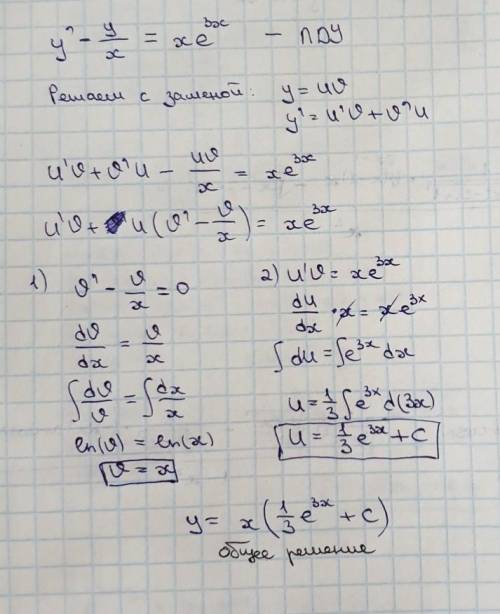 y' - y/x = xe^{3x} - ЛДУ
Решаем с заменой: y = uϑ
y' = u'ϑ + ϑ'u
u'ϑ + ϑ'u - uϑ/x = xe^{3x}
u'ϑ + u(ϑ' - ϑ/x) = xe^{3x}
1) ϑ' - ϑ/x = 0
dϑ/dx = ϑ/x
∫dϑ/ϑ = ∫dx/x
ln(ϑ) = ln(x)
ϑ = x
2) u'ϑ = xe^{3x}
du/dx · x = xe^{3x}
∫du = ∫e^{3x}dx
u = 1/3 ∫e^{3x}d(3x)
u = 1/3 e^{3x} + C
y = x(1/3 e^{3x} + C)
общее решение